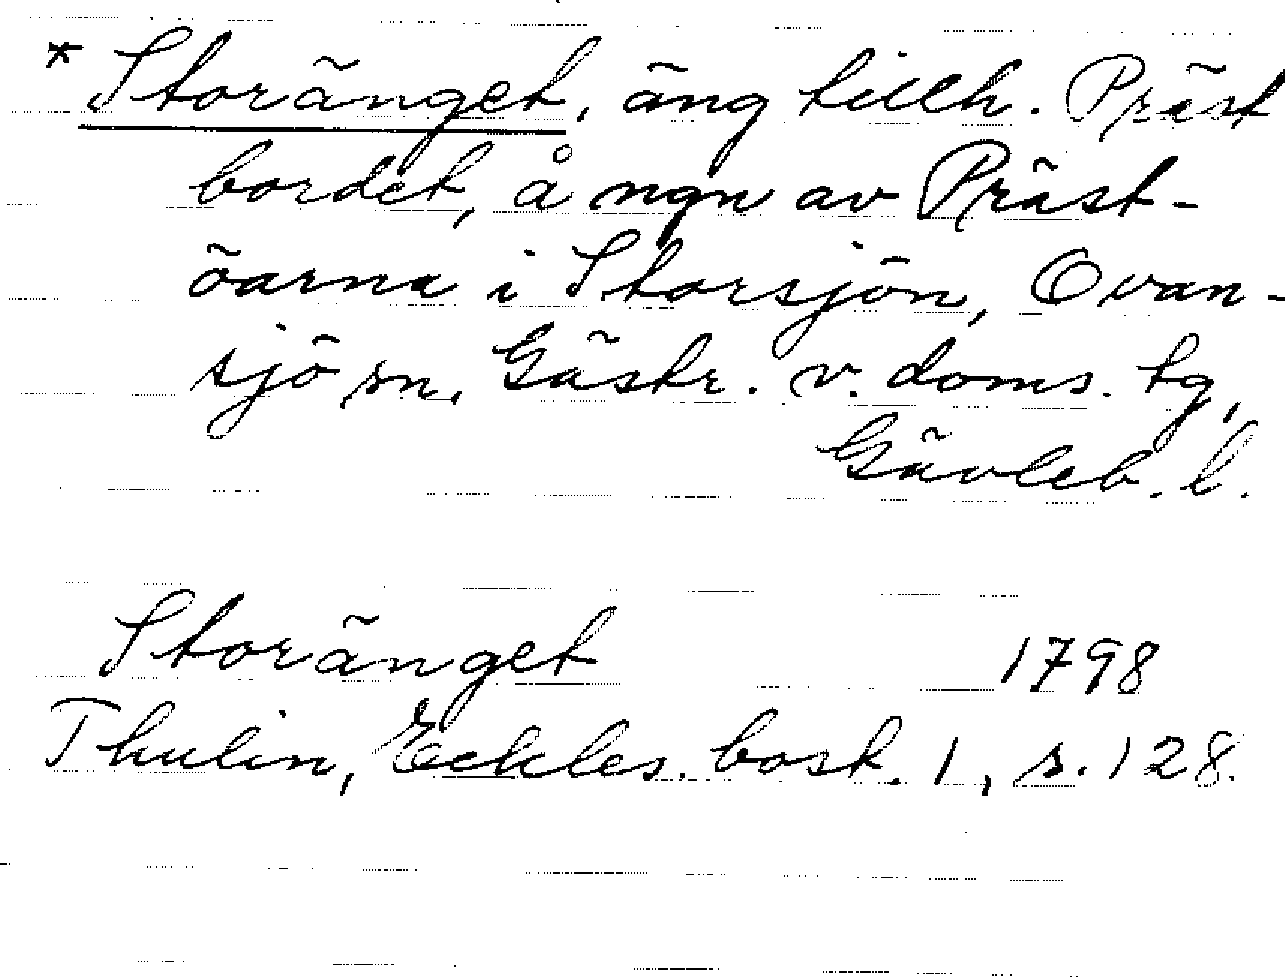 * Storänget, äng tillh. Präst
bordet, å ngn av Präst-
öarna i Storsjön, Ovan-
sjö sn, Gästr. v. doms. tg,
Gävleb. l.
Storänget 1798
Thulin, Eckles. bost. 1, s. 128.